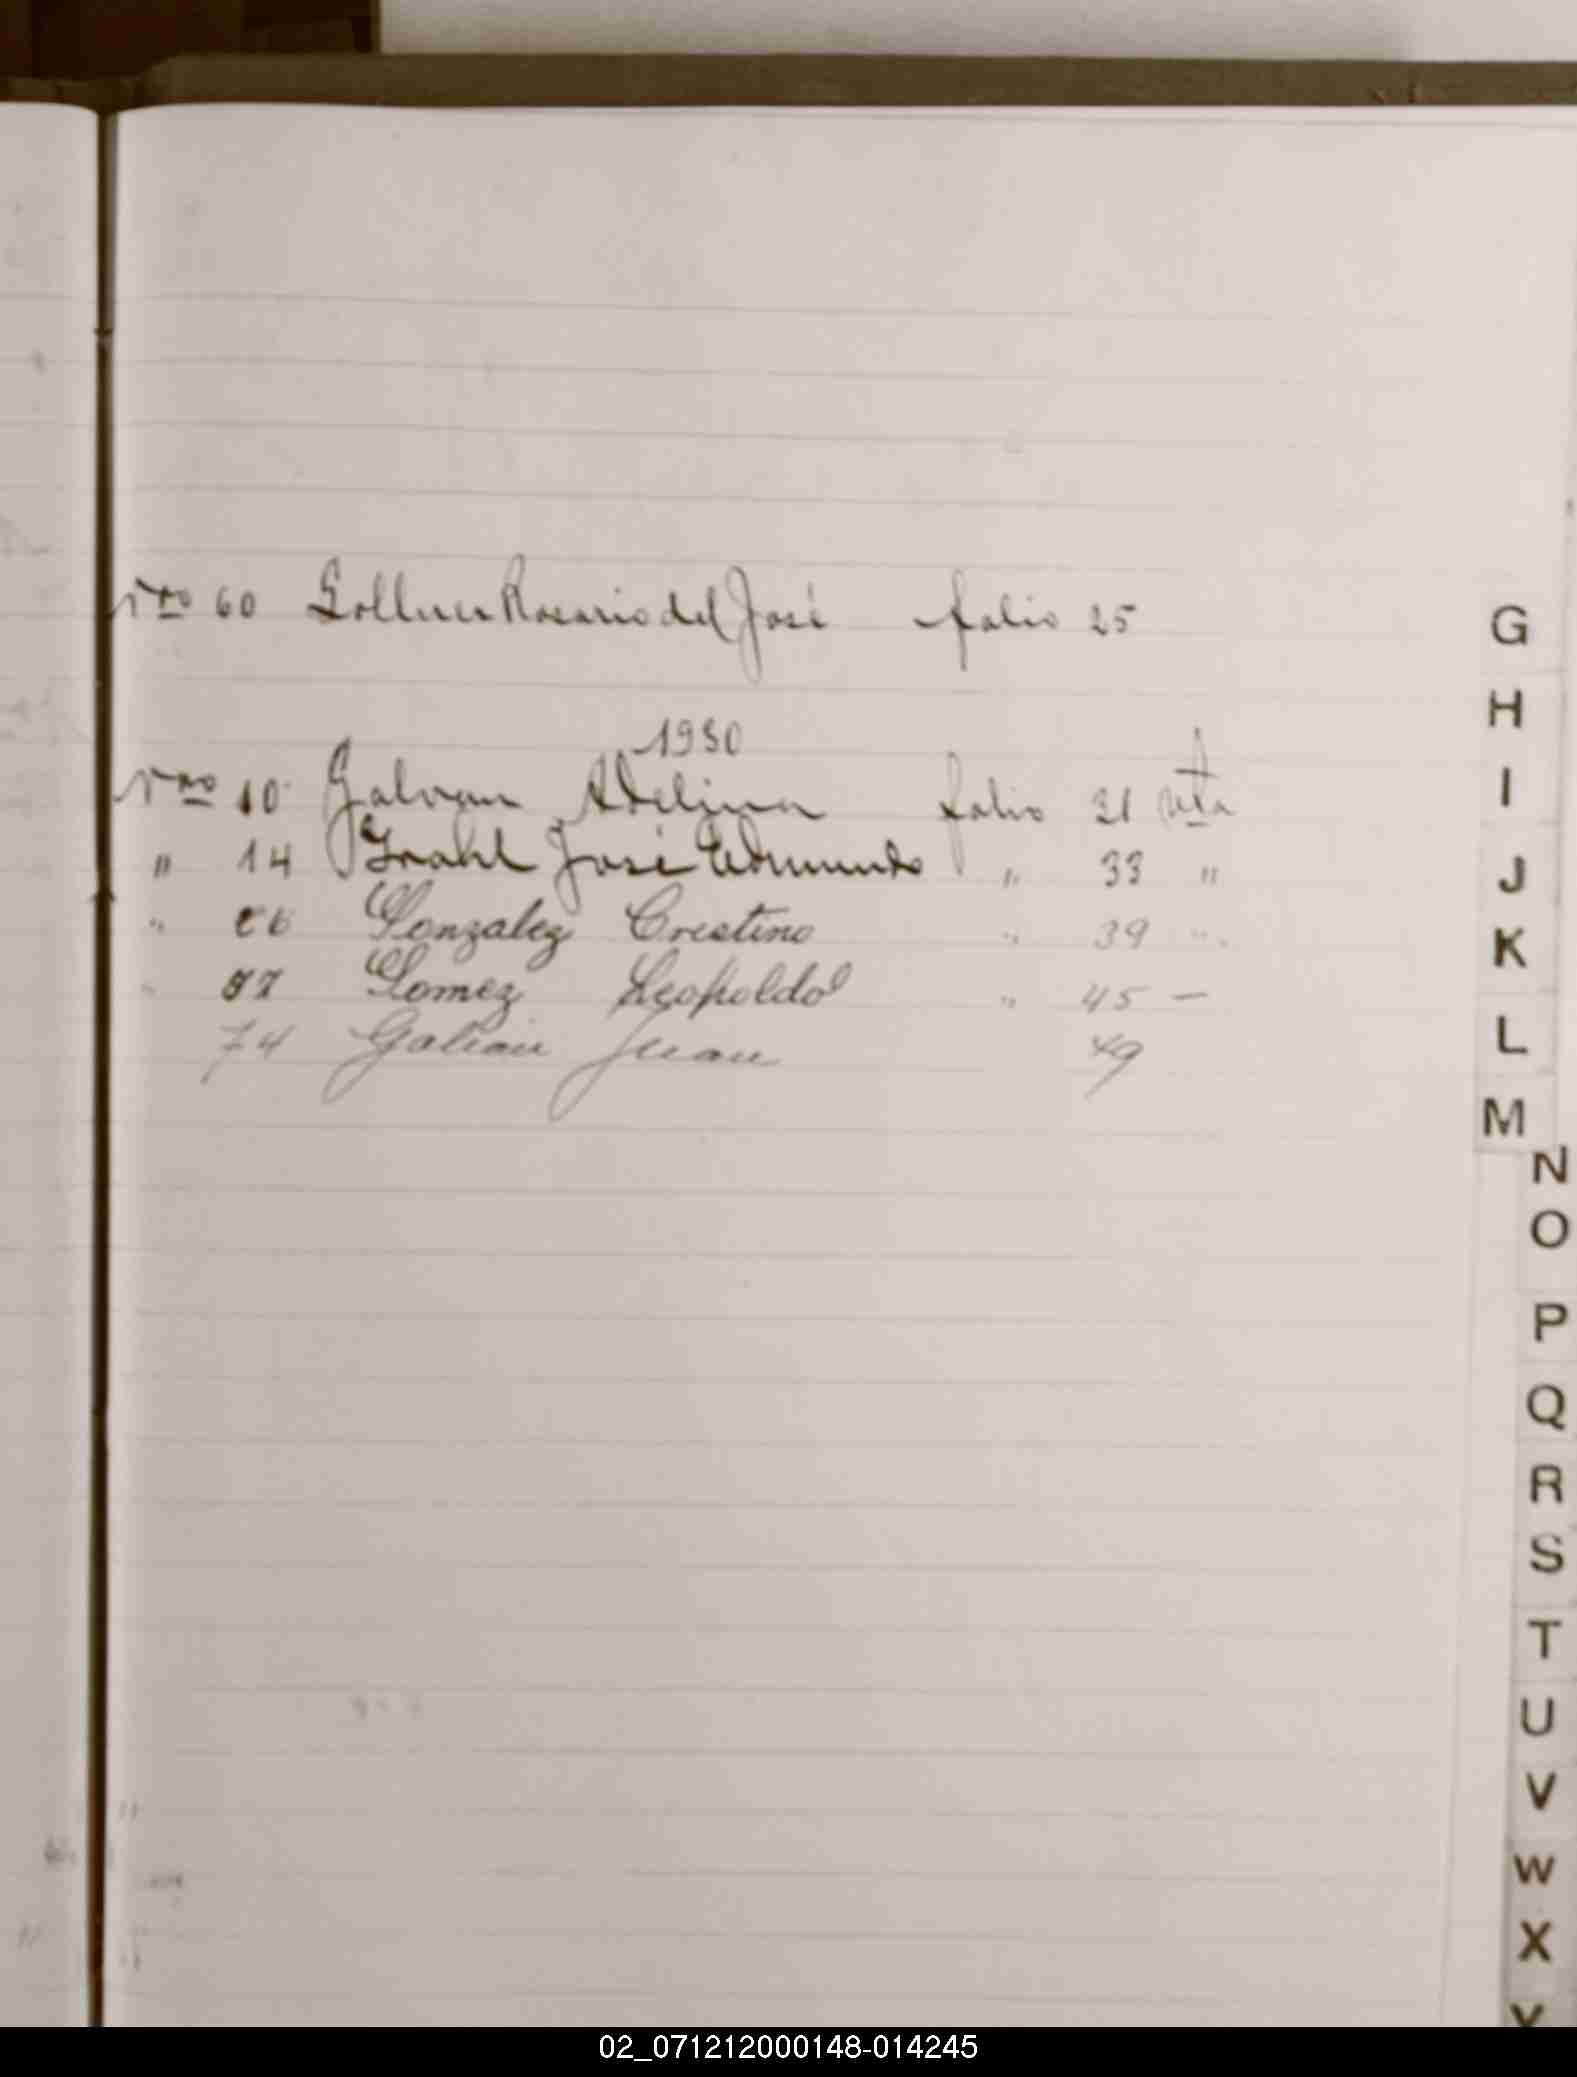 Nro 60 Rosario del José folio 25
1930
Nro 10 Galvan Adelina folio 31 vta
" 14 José Edmundo " 33 "
" Gonzalez Crestino " 39 "
" 57 Gomez Leopoldo " 45 —
74 Galian Juan 49
G
H
I
J
K
L
M
N
O
P
Q
R
S
T
U
V
W
X
Y
02_071212000148-014245